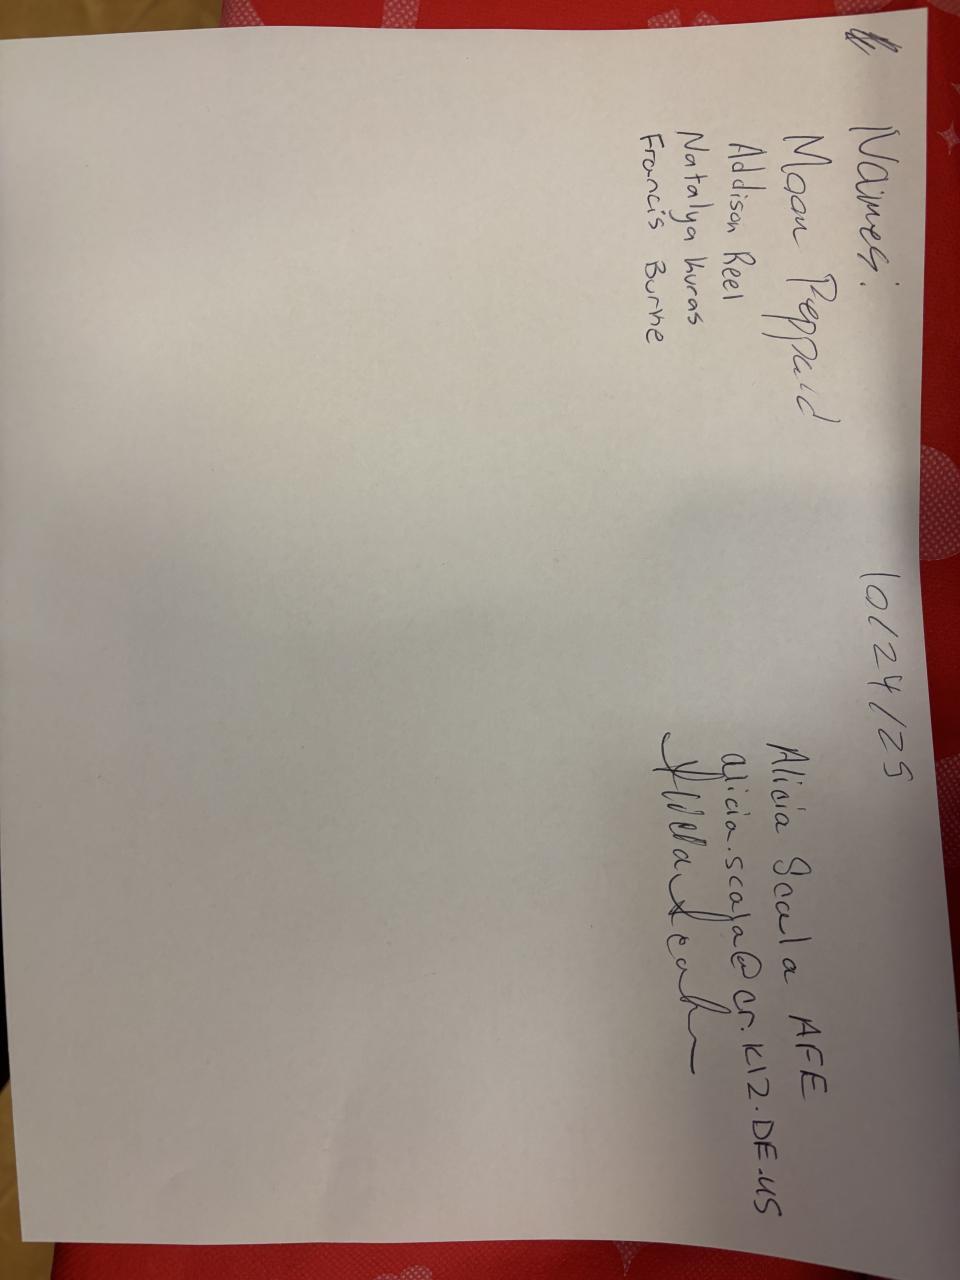 Names:
Moon
Addison Reel
Natalya Kuras
Francis Burke
10/24/25
Alicia Scala AFE
alicia.scala@cr.k12.DE.US
Alicia Scala